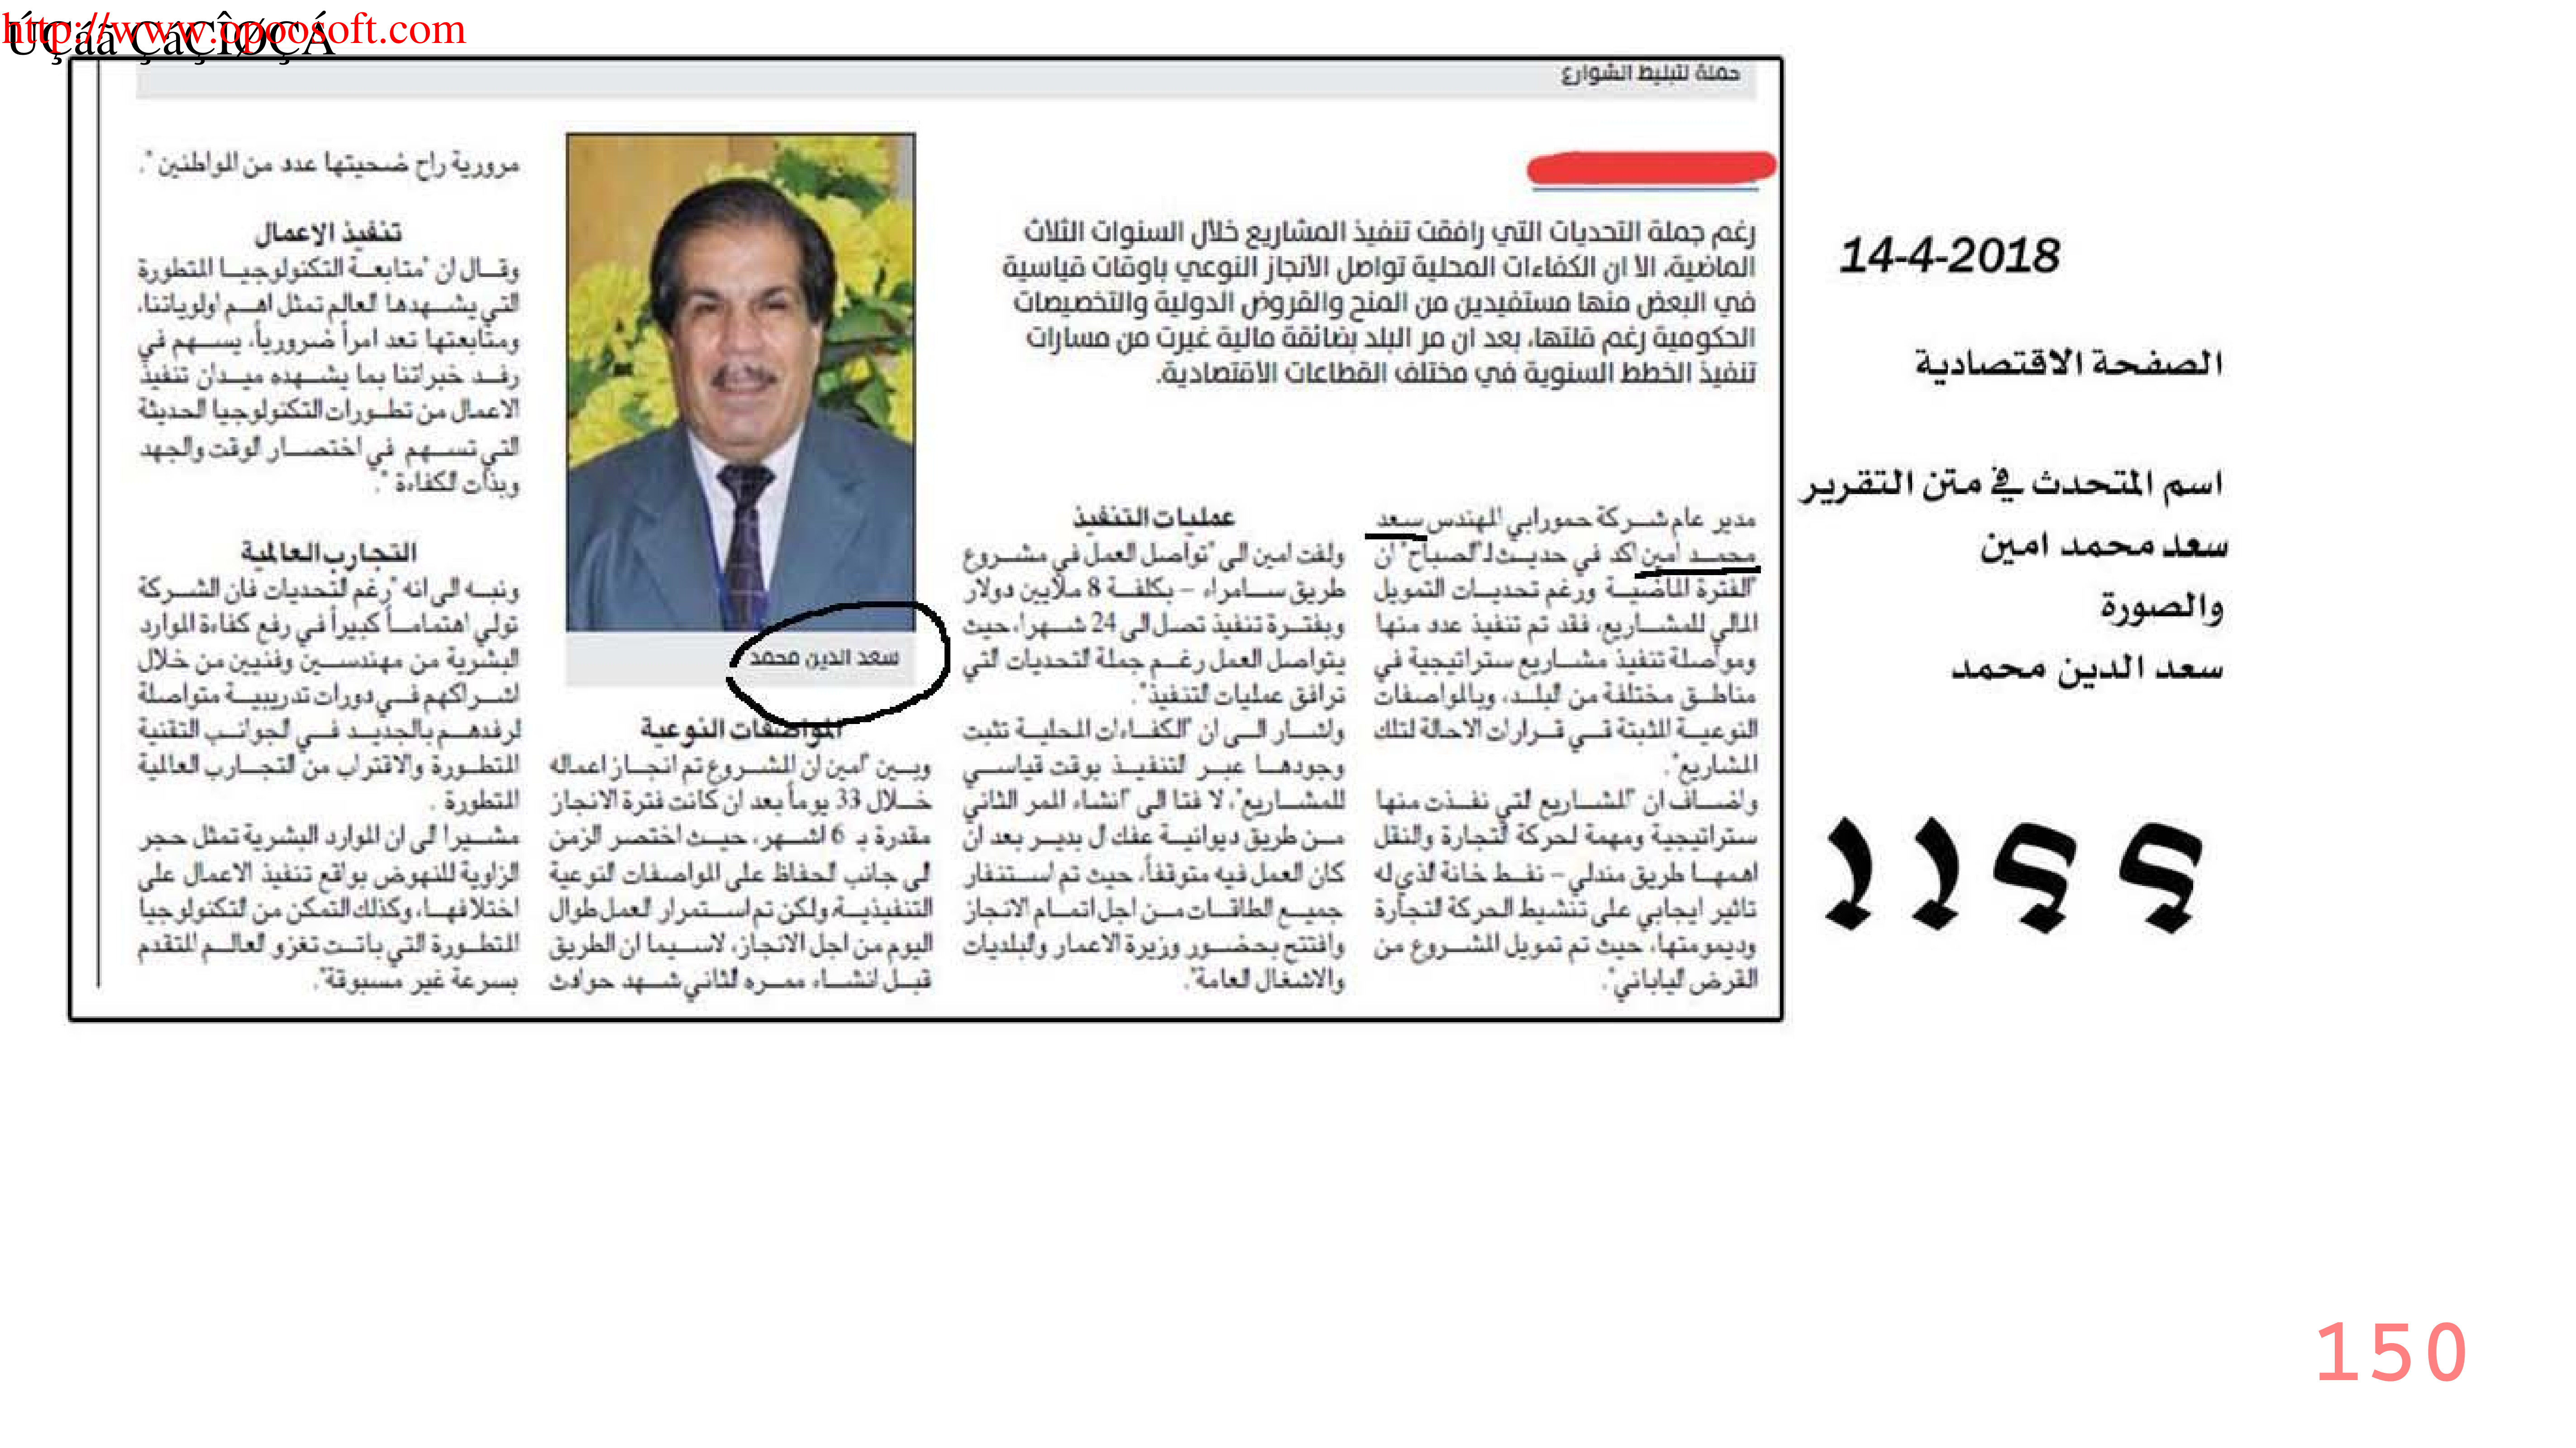 http://www.opoosoft.com
ÚÇáã ÇáÇÎØÇÁ
حملة لتبليط الشوارع
رغم جملة التحديات التي رافقت تنفيذ المشاريع خلال السنوات الثلاث
الماضية، الا ان الكفاءات المحلية تواصل الانجاز النوعي باوقات قياسية
في البعض منها مستفيدين من المنح والقروض الدولية والتخصيصات
الحكومية رغم قلتها، بعد ان مر البلد بضائقة مالية غيرت من مسارات
تنفيذ الخطط السنوية في مختلف القطاعات الاقتصادية.
مدير عام شركة حمورابي المهندس سعد
محمد امين اكد في حديث لـ"الصباح" ان
"الفترة الماضية ورغم تحديات التمويل
المالي للمشاريع، فقد تم تنفيذ عدد منها
ومواصلة تنفيذ مشاريع ستراتيجية في
مناطق مختلفة من البلد، وبالمواصفات
النوعية المثبتة قي قرارات الاحالة لتلك
المشاريع".
واضاف ان "المشاريع التي نفذت منها
ستراتيجية ومهمة لحركة التجارة والنقل
اهمها طريق مندلي – نفط خانة الذي له
تاثير ايجابي على تنشيط الحركة التجارة
وديمومتها، حيث تم تمويل المشروع من
القرض الياباني".
عمليات التنفيذ
ولفت امين الى "تواصل العمل في مشروع
طريق سامراء – بكلفة 8 ملايين دولار
وبفترة تنفيذ تصل الى 24 شهرا، حيث
يتواصل العمل رغم جملة التحديات التي
ترافق عمليات التنفيذ".
واشار الى ان "الكفاءات المحلية تثبت
وجودها عبر التنفيذ بوقت قياسي
للمشاريع"، لا فتا الى "انشاء الممر الثاني
من طريق ديوانية عفك ال بدير بعد ان
كان العمل فيه متوقفاً، حيث تم استنفار
جميع الطاقات من اجل اتمام الانجاز
وافتتح بحضور وزيرة الاعمار والبلديات
والاشغال العامة".
سعد الدين محمد
المواصفات النوعية
وبين "امين ان المشروع تم انجاز اعماله
خلال 33 يوماً بعد ان كانت فترة الانجاز
مقدرة بـ 6 اشهر، حيث اختصر الزمن
الى جانب الحفاظ على المواصفات النوعية
التنفيذية، ولكن تم استمرار العمل طوال
اليوم من اجل الانجاز، لاسيما ان الطريق
قبل انشاء ممره الثاني شهد حوادث
مرورية راح ضحيتها عدد من المواطنين".
تنفيذ الاعمال
وقال ان "متابعة التكنولوجيا المتطورة
التي يشهدها العالم تمثل اهم اولوياتنا،
ومتابعتها تعد امرأ ضرورياً، يسهم في
رفد خبراتنا بما يشهده ميدان تنفيذ
الاعمال من تطورات التكنولوجيا الحديثة
التي تسهم في اختصار الوقت والجهد
وبذات الكفاءة".
التجارب العالمية
ونبه الى انه "رغم التحديات فان الشركة
تولي اهتماماً كبيراً في رفع كفاءة الموارد
البشرية من مهندسين وفنيين من خلال
اشراكهم في دورات تدريبية متواصلة
لرفدهم بالجديد في الجوانب التقنية
المتطورة والاقتراب من التجارب العالمية
المتطورة .
مشيرا الى ان الموارد البشرية تمثل حجر
الزاوية للنهوض بواقع تنفيذ الاعمال على
اختلافها، وكذلك التمكن من التكنولوجيا
المتطورة التي باتت تغزو العالم المتقدم
بسرعة غير مسبوقة".
14-4-2018
الصفحة الاقتصادية
اسم المتحدث في متن التقرير
سعد محمد امين
والصورة
سعد الدين محمد
؟؟!!
150